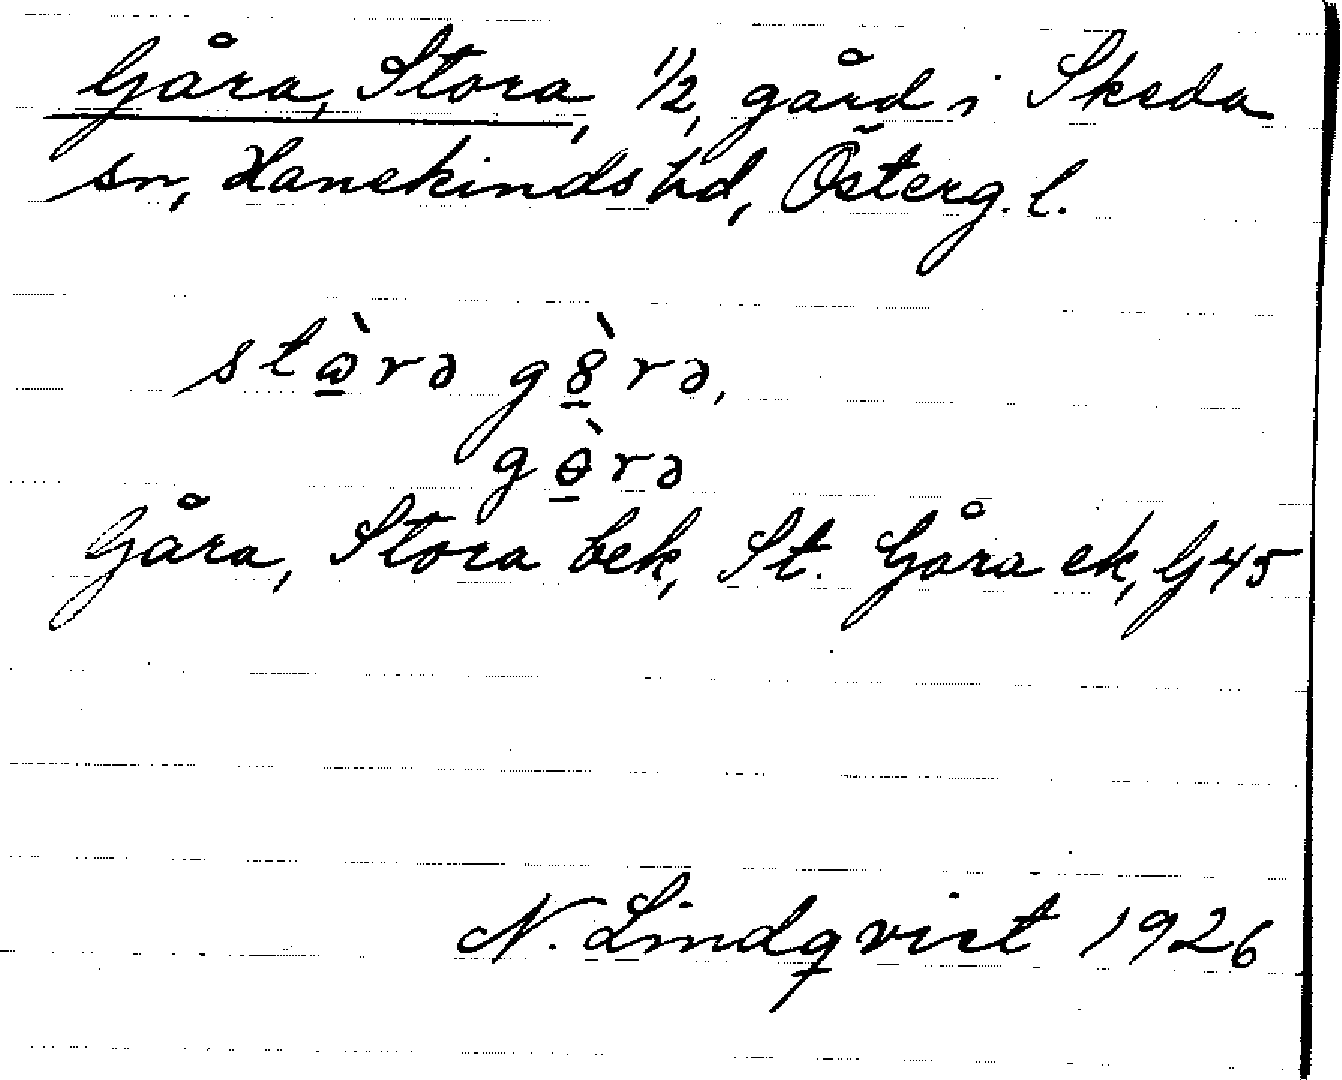 Gåra, Stora, 1/2, gård i Skeda
sn, Hanekinds hd, Österg. l.
stὼ̲rə g8̲̀rə,
gɵ̲̀rə
Gåra, Stora bek, St. Gåra ek, G45
N. Lindqvist 1926